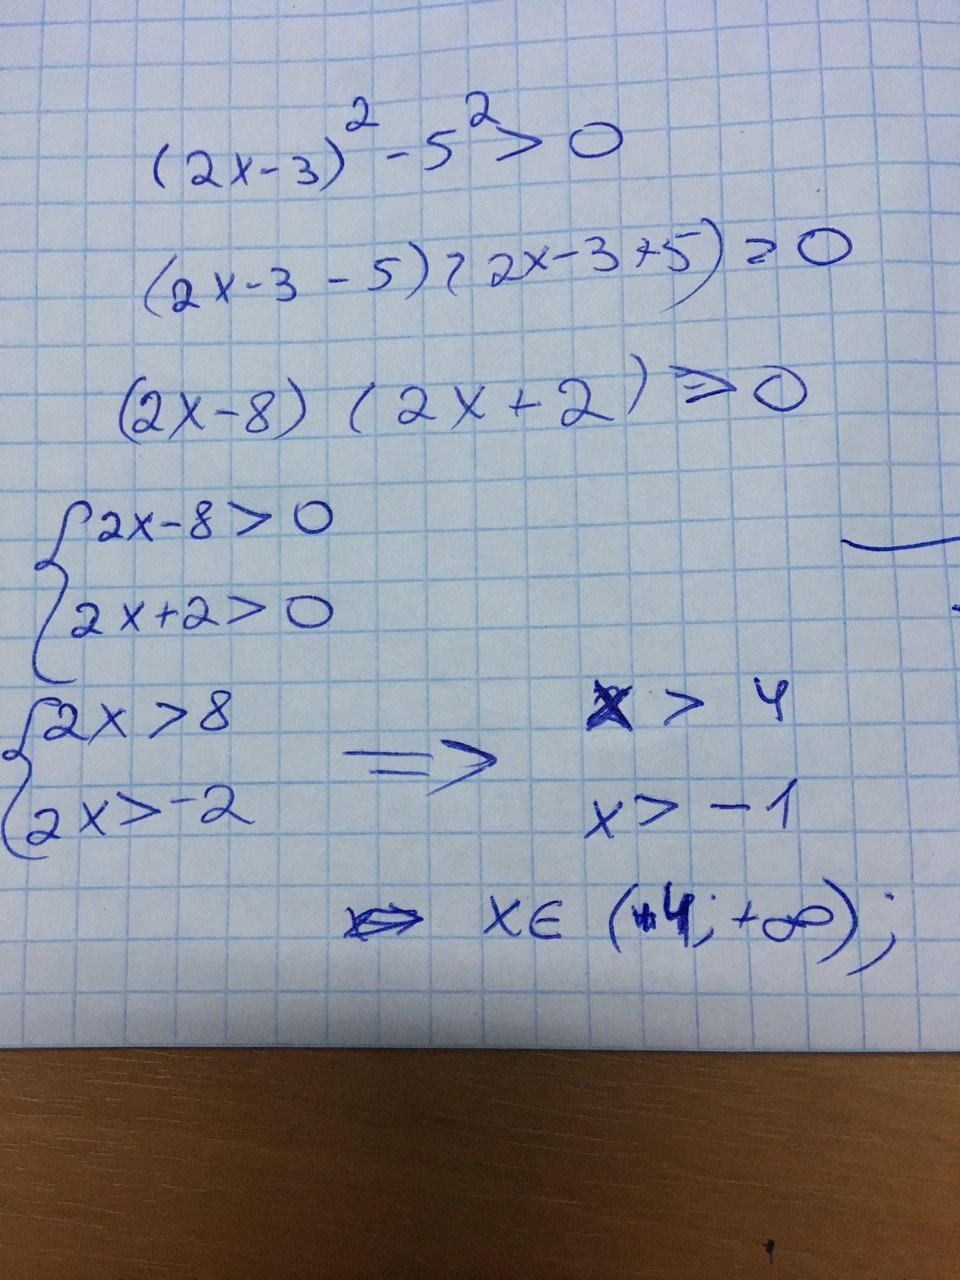 (2x-3)² - 5² > 0
(2x-3-5)(2x-3+5) > 0
(2x-8) (2x+2) > 0
{ 2x-8 > 0
2x+2 > 0
{ 2x > 8 => x > 4
2x > -2 x > -1
<=> x ∈ (4; +∞);